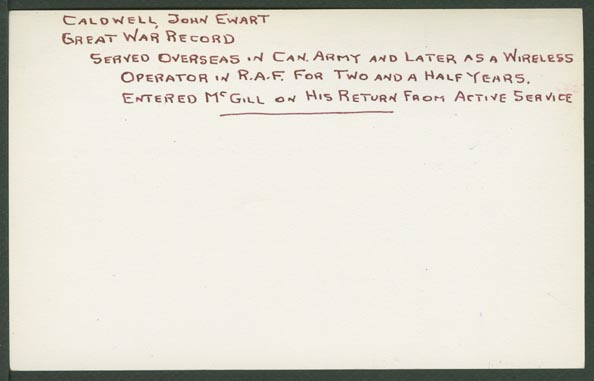 CALDWELL, JOHN EWART
GREAT WAR RECORD
SERVED OVERSEAS IN CAN. ARMY AND LATER AS A WIRELESS
OPERATOR IN R.A.F. FOR TWO AND A HALF YEARS.
ENTERED MCGILL ON HIS RETURN FROM ACTIVE SERVICE